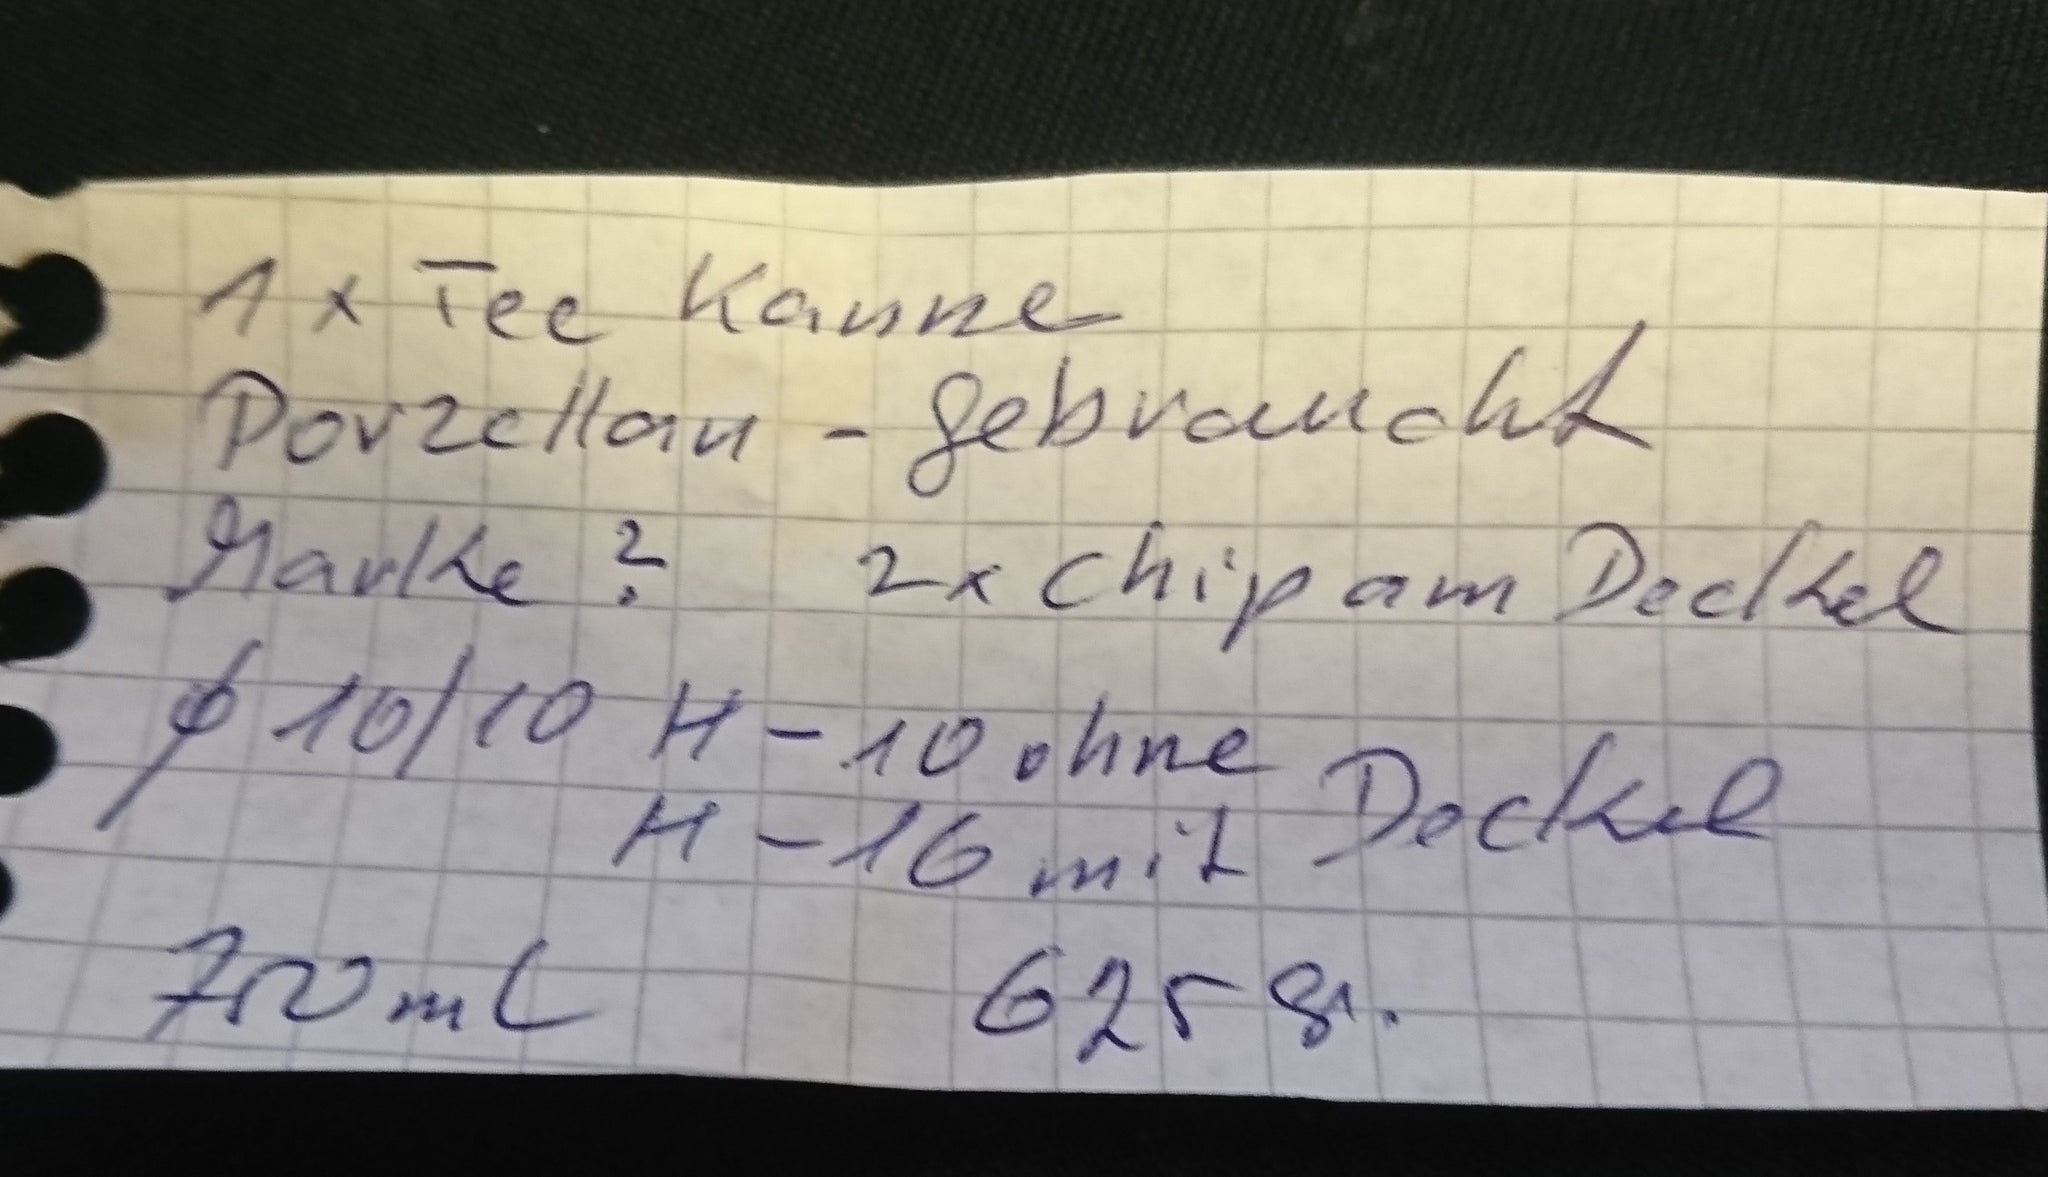 1 x Tee Kanne
Porzellan - gebraucht
Marke ? 2x Chip am Deckel
ø 10/10 H - 10 ohne Deckel
H - 16 mit
750 mL 625 gr.